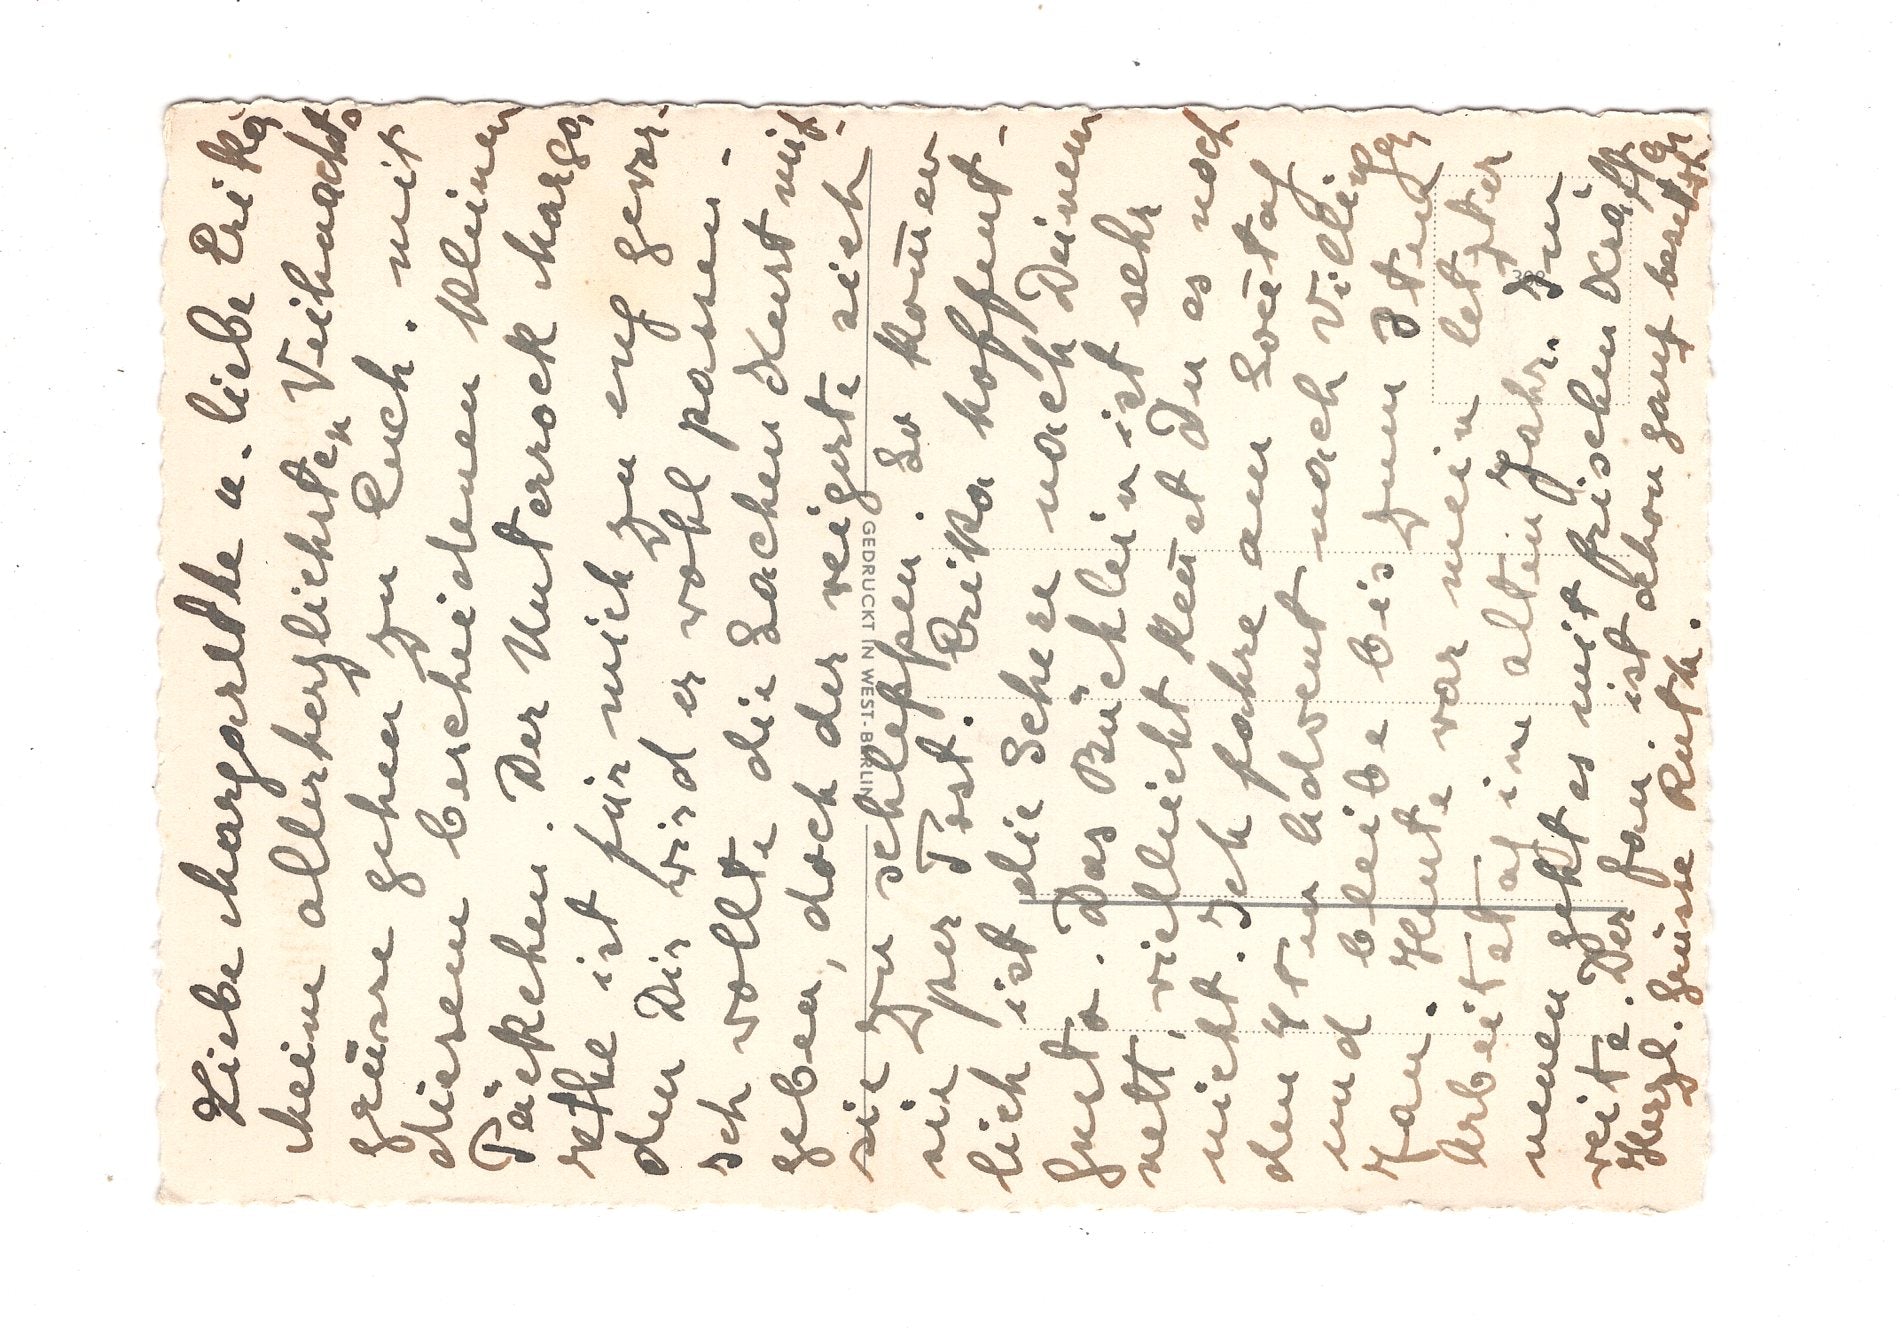 Liebe Margarethe u. liebe Erika
Meine allerherzlichsten Veihnachts
grüsse gehen zu Euch. mit
diesem bescheidenen kleinen
Päckchen. Der Unterrock Marga
rethe ist für mich zu eng gevor-
den Dir wird er vohl passen.-
sch vollte die Sachen Kurt mit-
geben, doch der veigerte sich
sie zu schleppen. So kom̄en
sie per Post. Erika hoffent-
lich ist die Schere nach Deinem
Gusto. Das Büchlein ist sehr
nett, vielleicht ken̄st Du es noch
nicht. Ich fahre am Son̄tag
den 4ten Advent nach Villingen
und bleibe bis zum 3ten
Jan. Heute var mein letzter
Arbeitstag im alten Jahr. Im
neuen geht es mit frischen Kräft
veiter. Der ist schon ganz besetzt
Herzl. Grüsse Ruth.
GEDRUCKT IN WEST-BERLIN
308